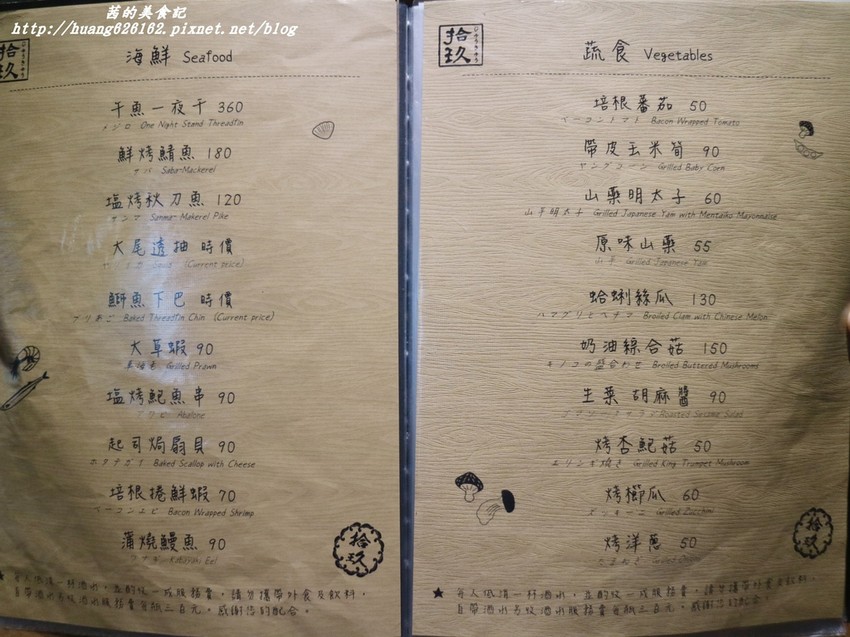 茜的美食記
http://huang626162.pixnet.net/blog
拾玖
海鮮 Seafood
午魚一夜干 360
One Night Stand Threadfin
鮮烤鯖魚 180
サバ Saba-Mackerel
塩烤秋刀魚 120
サンマ Sanma- Makerel Pike
大尾透抽 時價
(Current price)
鰤魚下巴 時價
ブリあご Baked Threadfin Chin (Current price)
大草蝦 90
Grilled Prawn
塩烤鮑魚串 90
Abalone
起司焗扇貝 90
ホタテガイ Baked Scallop with Cheese
培根捲鮮蝦 70
ベーコンエビ Bacon Wrapped Shrimp
蒲燒鰻魚 90
ウナギ Kabayaki Eel
拾玖
★ 每人低消一杯酒水，並酌收一成服務費，請勿攜帶外食及飲料，
自帶酒水另收酒水服務費每瓶三百元，感謝您的配合。
拾玖
蔬食 Vegetables
培根番茄 50
ベーコントマト Bacon Wrapped Tomato
帶皮玉米筍 90
ヤングコーン Grilled Baby Corn
山藥明太子 60
山芋明太子 Grilled Japanese Yam with Mentaiko Mayonnaise
原味山藥 55
山芋 Grilled Japanese Yam
蛤蜊絲瓜 130
ハマグリとヘチマ Broiled Clam with Chinese Melon
奶油綜合菇 150
キノコの盛合わせ Broiled Buttered Mushrooms
生菜胡麻醬 90
Roasted Sesame Salad
烤杏鮑菇 50
エリンギ焼き Grilled King Trumpet Mushroom
烤櫛瓜 60
ズッキーニ Grilled Zucchini
烤洋蔥 50
たまねぎ Grilled
拾玖
★ 每人低消一杯酒水，並酌收一成服務費，請勿攜帶外食及飲料，
自帶酒水另收酒水服務費每瓶三百元，感謝您的配合。